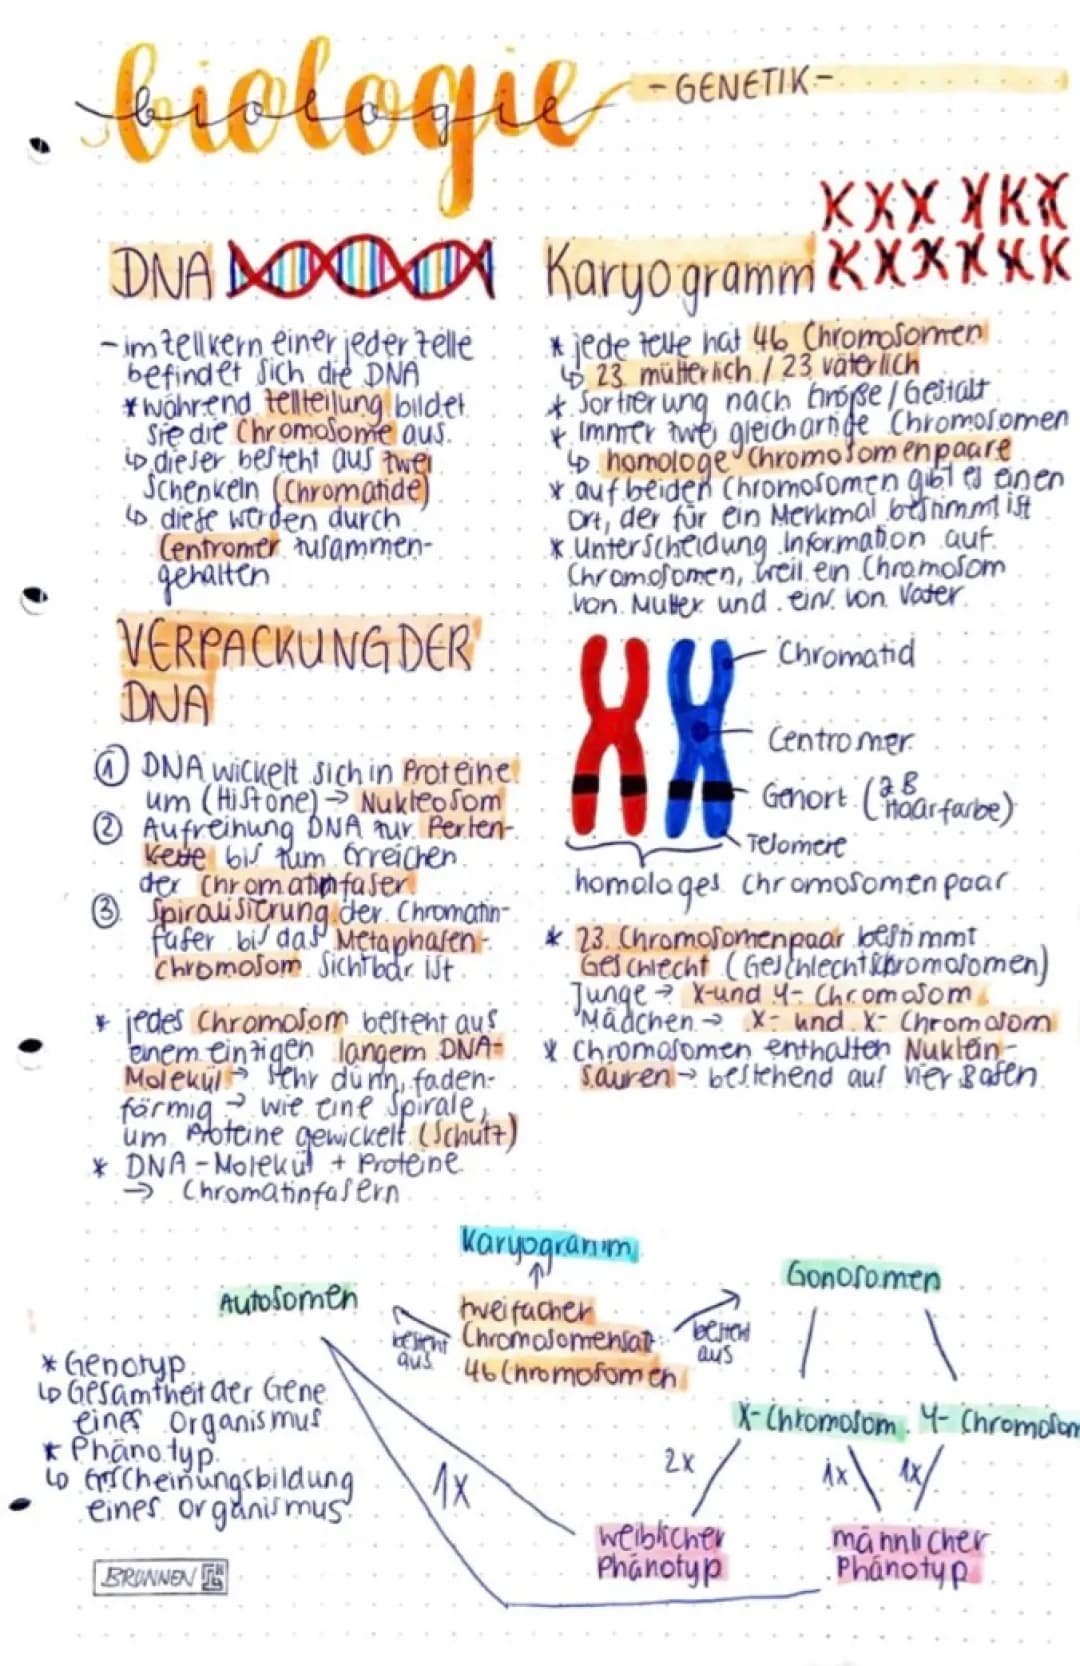 biologie
-GENETIK-
DNA
- im Zellkern einer jeder Zelle
befindet sich die DNA
* während Zellteilung bildet
sie die Chromosome aus.
↳ dieser besteht aus zwei
Schenkeln (Chromatide)
↳ diese werden durch
Centromer zusammen-
gehalten
VERPACKUNG DER
DNA
① DNA wickelt sich in Proteine
um (Histone) → Nukleosom
② Aufreihung DNA zur Perlen-
kette bis zum Erreichen
der Chromatinfaser
③ Spiralisierung der Chromatin-
faser bis das Metaphasen-
chromosom sichtbar ist
* jedes Chromosom besteht aus
einem einzigen langem DNA-
Molekül → sehr dünn, faden-
förmig → wie eine Spirale,
um Proteine gewickelt (Schutz)
* DNA-Molekül + Proteine
→ Chromatinfasern
Karyogramm
* jede Zelle hat 46 Chromosomen
↳ 23 mütterlich / 23 väterlich
* Sortierung nach Größe / Gestalt
* Immer zwei gleichartige Chromosomen
↳ homologe Chromosomenpaare
* auf beiden Chromosomen gibt es einen
Ort, der für ein Merkmal bestimmt ist
* Unterscheidung Information auf
Chromosomen, weil ein Chromosom
von Mutter und ein. von Vater
Chromatid
Centromer
Genort (z B
Haarfarbe)
Telomere
homologes Chromosomenpaar
* 23. Chromosomenpaar bestimmt
Geschlecht (Geschlechtschromosomen)
Junge → X-und Y- Chromosom
Mädchen → X- und X- Chromosom
* Chromosomen enthalten Nuklein-
säuren → bestehend aus vier Basen
Karyogramm
Autosomen
besteht
aus
zweifacher
Chromosomensatz
46 Chromosomen
besteht
aus
Gonosomen
X-Chromosom
Y- Chromosom
* Genotyp
↳ Gesamtheit der Gene
eines Organismus
* Phänotyp
↳ Erscheinungsbildung
eines organismus
1x
2x
1x
1x
weiblicher
Phänotyp
männlicher
Phänotyp
BRUNNEN